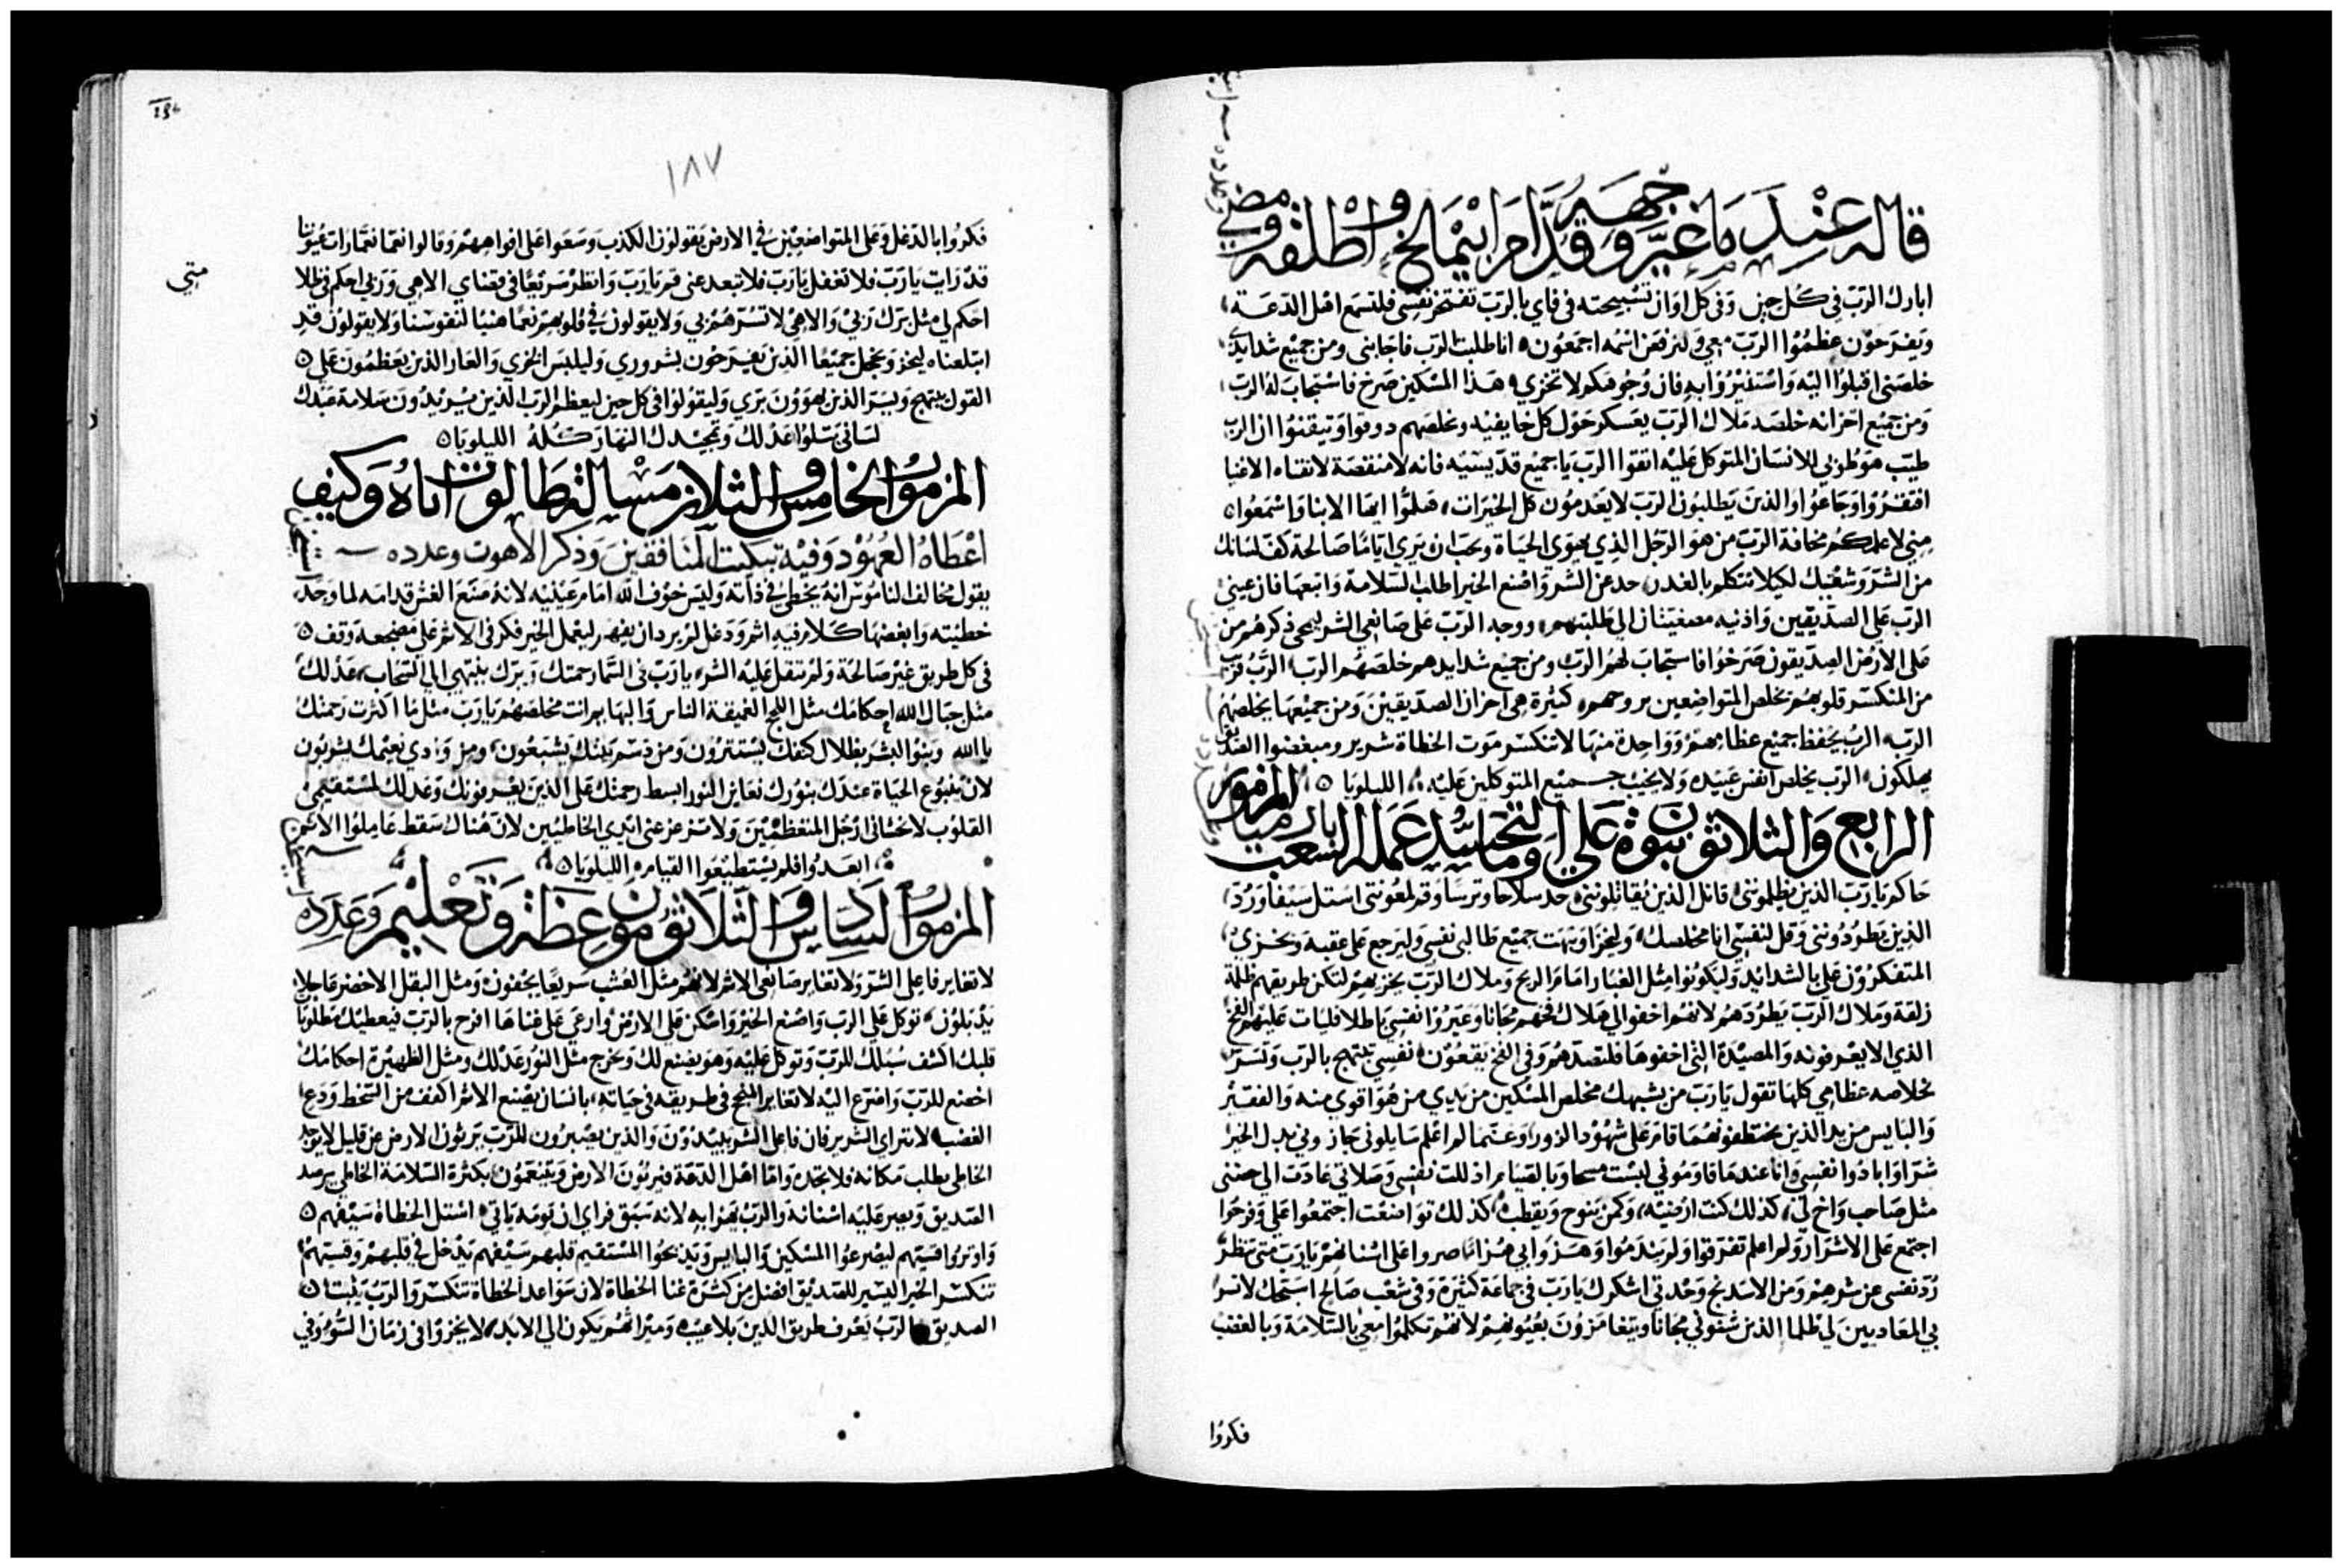 قاله عندما غير وجهه وقدام ابيمالخ واطلقه ومضى
ابارك الرب في كل حين وفي كل اوان تسبيحته في فاي بالرب تفتخر نفسي فلتسمع اهل الدعة
ويفرحون عظموا الرب معي ولنرفعن اسمه اجمعون انا طلبت الرب فاجابني ومن جميع شدايدي
خلصني اقبلوا اليه واستنيروا به فان وجوهكم لا تخزي هذا المسكين صرخ فاستجاب له الرب
ومن جميع احزانه خلصه ملاك الرب يعسكر حول كل خايفيه ويخلصهم ذوقوا وتيقنوا ان الرب
طيب هو طوبي للانسان المتوكل عليه اتقوا الرب يا جميع قديسيه فانه لا منقصة لاتقياه الاغنيا
افتقروا وجاعوا والذين يطلبون الرب لا يعدمون كل الخيرات هلموا ايها الابنا واسمعوا
مني لاعلمكم مخافة الرب من هو الرجل الذي يهوي الحياة ويحب ان يري اياما صالحة كف لسانك
من الشر وشفتيك لكيلا تتكلم بالغدر حد عن الشر واصنع الخير اطلب السلامة واتبعها فان عيني
الرب علي الصديقين واذنيه مصغيتان الي طلبتهم ووجه الرب علي صانعي الشر ليمحي ذكرهم من
علي الارض الصديقون صرخوا فاستجاب لهم الرب ومن جميع شدايدهم خلصهم الرب الرب قريب
من المنكسر قلوبهم يخلص المتواضعين بروحهم كثيرة هي احزان الصديقين ومن جميعها يخلصهم
الرب الرب يحفظ جميع عظامهم وواحدة منها لا تنكسر موت الخطاة شرير ومبغضوا الصديق
يهلكون الرب يخلص انفس عبيده ولا يخيب جميع المتوكلين عليه الليلويا المزمور
الرابع والثلاثون نبوة علي ارميا وما تحاسيد عمله الشعب
حاكم يا رب الذين يظلموني قاتل الذين يقاتلونني خد سلاحا وترسا وقم لمعونتي استل سيفا ورد
الذين يطردونني وقل لنفسي انا مخلصك وليخزا ويبهت جميع طالبي نفسي وليرجع علي عقبه ويخزي
المتفكرون علي بالشدايد وليكونوا مثل الغبار امام الريح وملاك الرب يحزيهم لتكن طريقهم ظلمة
زلقة وملاك الرب يطردهم لانهم اخفوا لي هلاك فخهم مجانا وعيروا نفسي باطلا فليات عليهم الفخ
الذي لا يعرفونه والمصيدة التي اخفوها فلتصدهم وفي الفخ يقعون نفسي تبتهج بالرب وتسر
بخلاصه عظامي كلها تقول يا رب من يشبهك مخلص المسكين من يدي من هو اقوي منه والفقير
والبايس من يد الذين يختطفونهما قام علي شهود الزور وعما لم اعلم سايلوني جازوني بدل الخير
شرا وابادوا نفسي وانا عندما قاوموني لبست مسحا وبالصيام اذللت نفسي وصلاتي عادت الي حضني
مثل صاحب واخ لي كذلك كنت ارضيه وكمن ينوح ويقطب كذلك تواضعت اجتمعوا علي وفرحوا
اجتمع علي الاشرار ولم اعلم تفرقوا ولم يندموا وهزوا بي هزا صروا علي اسنانهم يا رب متي تنظر
رد نفسي من شرهم ومن الاسد نج وحدتي اشكرك يا رب في جماعة كثيرة وفي شعب صالح اسبحك لا تسر
بي المعاديين لي ظلما الذين شنوني مجانا ويتغامزون بعيونهم لانهم تكلموا معي بالسلامة وبالغضب
فكروا
١٨٧
متي
فكروا بالدغل وعلي المتواضعين في الارض يقولون الكذب وسعوا علي افواههم وقالوا نعما نعما رات عيوننا
قد رايت يا رب فلا تغفل يا رب فلا تبعد عني قم يا رب وانظر سريعا في قضاي الاهي وربي احكم في ظلا
احكم لي مثل برك ربي والاهي لا تسرهم بي ولا يقولون في قلوبهم نعما هنيا لنفوسنا ولا يقولون قد
ابتلعناه ليخز ويخجل جميعا الذين يفرحون بشروري وليلبس الخزي والعار الذين يعظمون علي
القول يبتهج ويسر الذين يهوون بري وليقولوا في كل حين ليعظم الرب الذين يريدون سلامة عبدك
لساني يتلوا عدلك وتمجيدك النهار كله الليلويا
المزمور الخامس والثلاثون مسالة طالوت اياه وكيف
اعطاه العهود وفيه تبكيت المنافقين وذكر الاهوت وعدده
يقول مخالف الناموس انه يخطي في ذاته وليس خوف الله امام عينيه لانه صنع الغش قدامه لما وجد
خطيته وابغضها كلام فيه اثم ودغل لم يرد ان يفهم ليعمل الخير فكر في الاثم علي مضجعه وقف
في كل طريق غير صالحة ولم تثقل عليه الشر يا رب في السما رحمتك وبرك ينتهي الي السحاب عدلك
مثل جبال الله احكامك مثل اللجج العميقة الناس والبهايم انت مخلصهم يا رب مثل ما اكثرت رحمتك
يا الله وبنوا البشر بظلال كنفك يستترون ومن دسم بيتك يشبعون ومن وادي نعيمك يشربون
لان ينبوع الحياة عندك بنورك نعاين النور ابسط رحمتك علي الذين يعرفونك وعدلك لمستقيمي
القلوب لا تحشاني ارجل المتعظمين ولا تزعزعني ايدي الخاطيين لان هناك سقط عاملوا الاثم
ابعدوا فلم يستطيعوا القيام الليلويا
المزمور السادس والثلاثون موعظة وتعليم وعدده
لا تغاير فاعلي الشر ولا تغاير صانعي الاثم لانهم مثل العشب سريعا يجفون ومثل البقل الاخضر عاجلا
يذبلون توكل علي الرب واصنع الخير واسكن علي الارض وارعي علي غناها افرح بالرب فيعطيك مطلوبا
قلبك اكشف سبلك للرب وتوكل عليه وهو يصنع لك ويخرج مثل النور عدلك ومثل الظهيرة احكامك
اخضع للرب واضرع اليه لا تغاير المنجح في طريقه في حياته بانسان يصنع الاثم اكفف من السخط ودع
الغضب لا تتراي الشرير فان فاعلي الشر يبيدون والذين يصبرون للرب يرثون الارض عن قليل لا يوجد
الخاطي يطلب مكانه فلا تجده واما اهل الدعة فيرثون الارض ويتنعمون بكثرة السلامة الخاطي يرصد
الصديق ويصر عليه اسنانه والرب يهزا به لانه سبق فراي ان يومه ياتي استل الخطاة سيفهم
واوتروا قسيهم ليصرعوا المسكين والبايس ويذبحوا المستقيم قلبهم سيفهم يدخل في قلبهم وقسيهم
تنكسر الخير اليسير للصديق افضل من كثرة غنا الخطاة لان سواعد الخطاة تنكسر والرب يثبت
الصديق الرب يعرف طريق الذين بلا عيب وميراثهم يكون الي الابد لا يخزوا في زمان السوء وفي